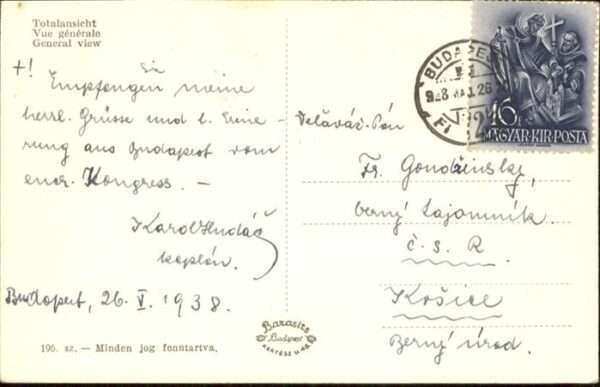 Totalansicht
Vue générale
General view
+!
Empfangen Sie meine
herzl. Grüsse und l. Erinne-
rung aus Budapest vom
euch. Kongress. –
Karol Hudáč
kaplán.
Budapest, 26. V. 1938.
196. sz. — Minden jog fenntartva.
Barasits
Budapest
BUDAPEST
16
MAGYAR·KIR·POSTA
Pán
Fr.
berný tajomník
č. s. R.
Košice
Berný úrad.